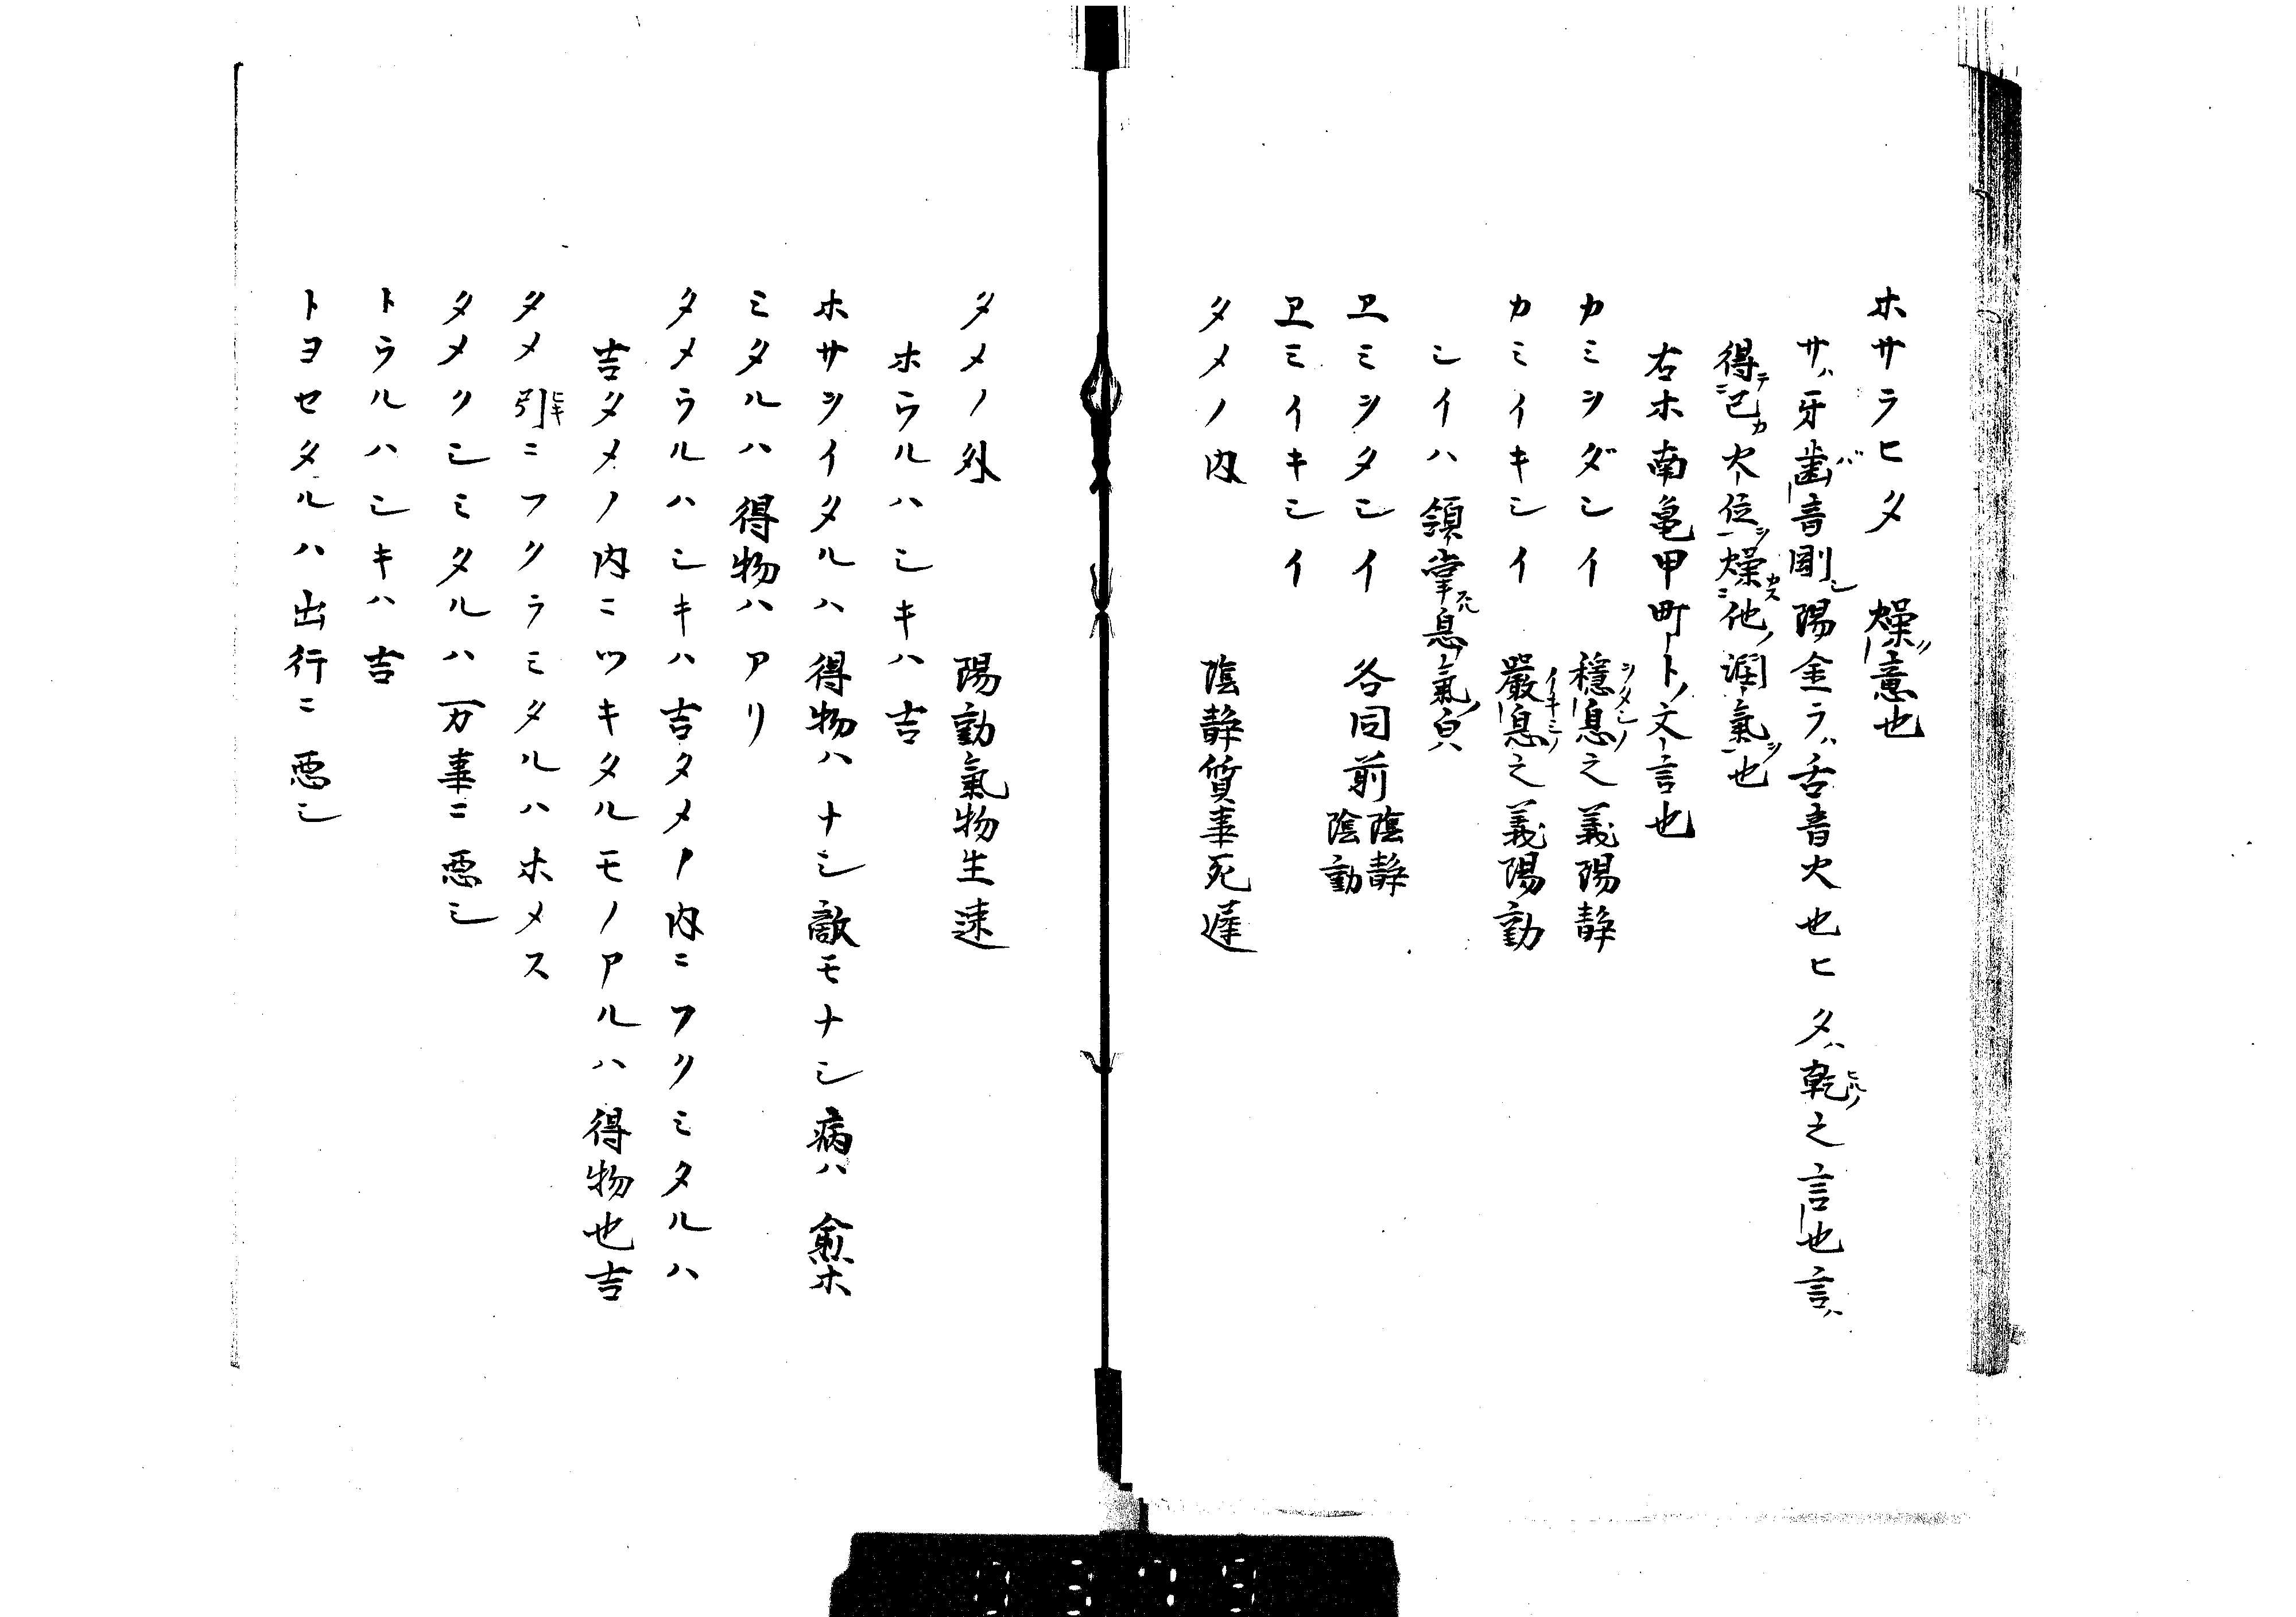 ホサラヒタ　燥ノ意也
サハ牙歯音剛シ陽金ラハ舌音火也ヒタハ乾ヒルノ之言也言ハ
得テ己カ火位ニシ燥カス他ノ潤氣ヲ也
右ホ南亀甲町トノ文言也
カミシダシイ　穏シタシノ息之義陽静
カミイキシイ　嚴イキミノ息之義陽動
シイハ領掌息氣ノ㒵
ヱミシタシイ　各同前陰静陰動
ヱミイキシイ
タメノ内　陰静質事死遅
タメノ外　陽動氣物生速
ホウルハシキハ吉
ホサシイタルハ得物ハナシ敵モナシ病ハ愈ホ
ミタルハ得物ハアリ
タメウルハシキハ吉タメノ内ニフクミタルハ
吉タメノ内ニツキタルモノアルハ得物也吉
タメ引ヒキニフクラミタルハホメス
タメクシミタルハ万事ニ悪シ
トウルハシキハ吉
トヨセタルハ出行ニ悪シ